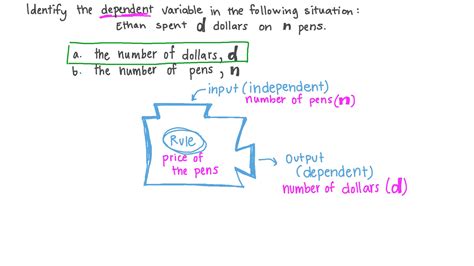 Identify the dependent variable in the following situation:
Ethan spent d dollars on n pens.
a. the number of dollars, d
b. the number of pens, n
input (independent)
number of pens (n)
Rule
price of
the pens
output
(dependent)
number of dollars (d)